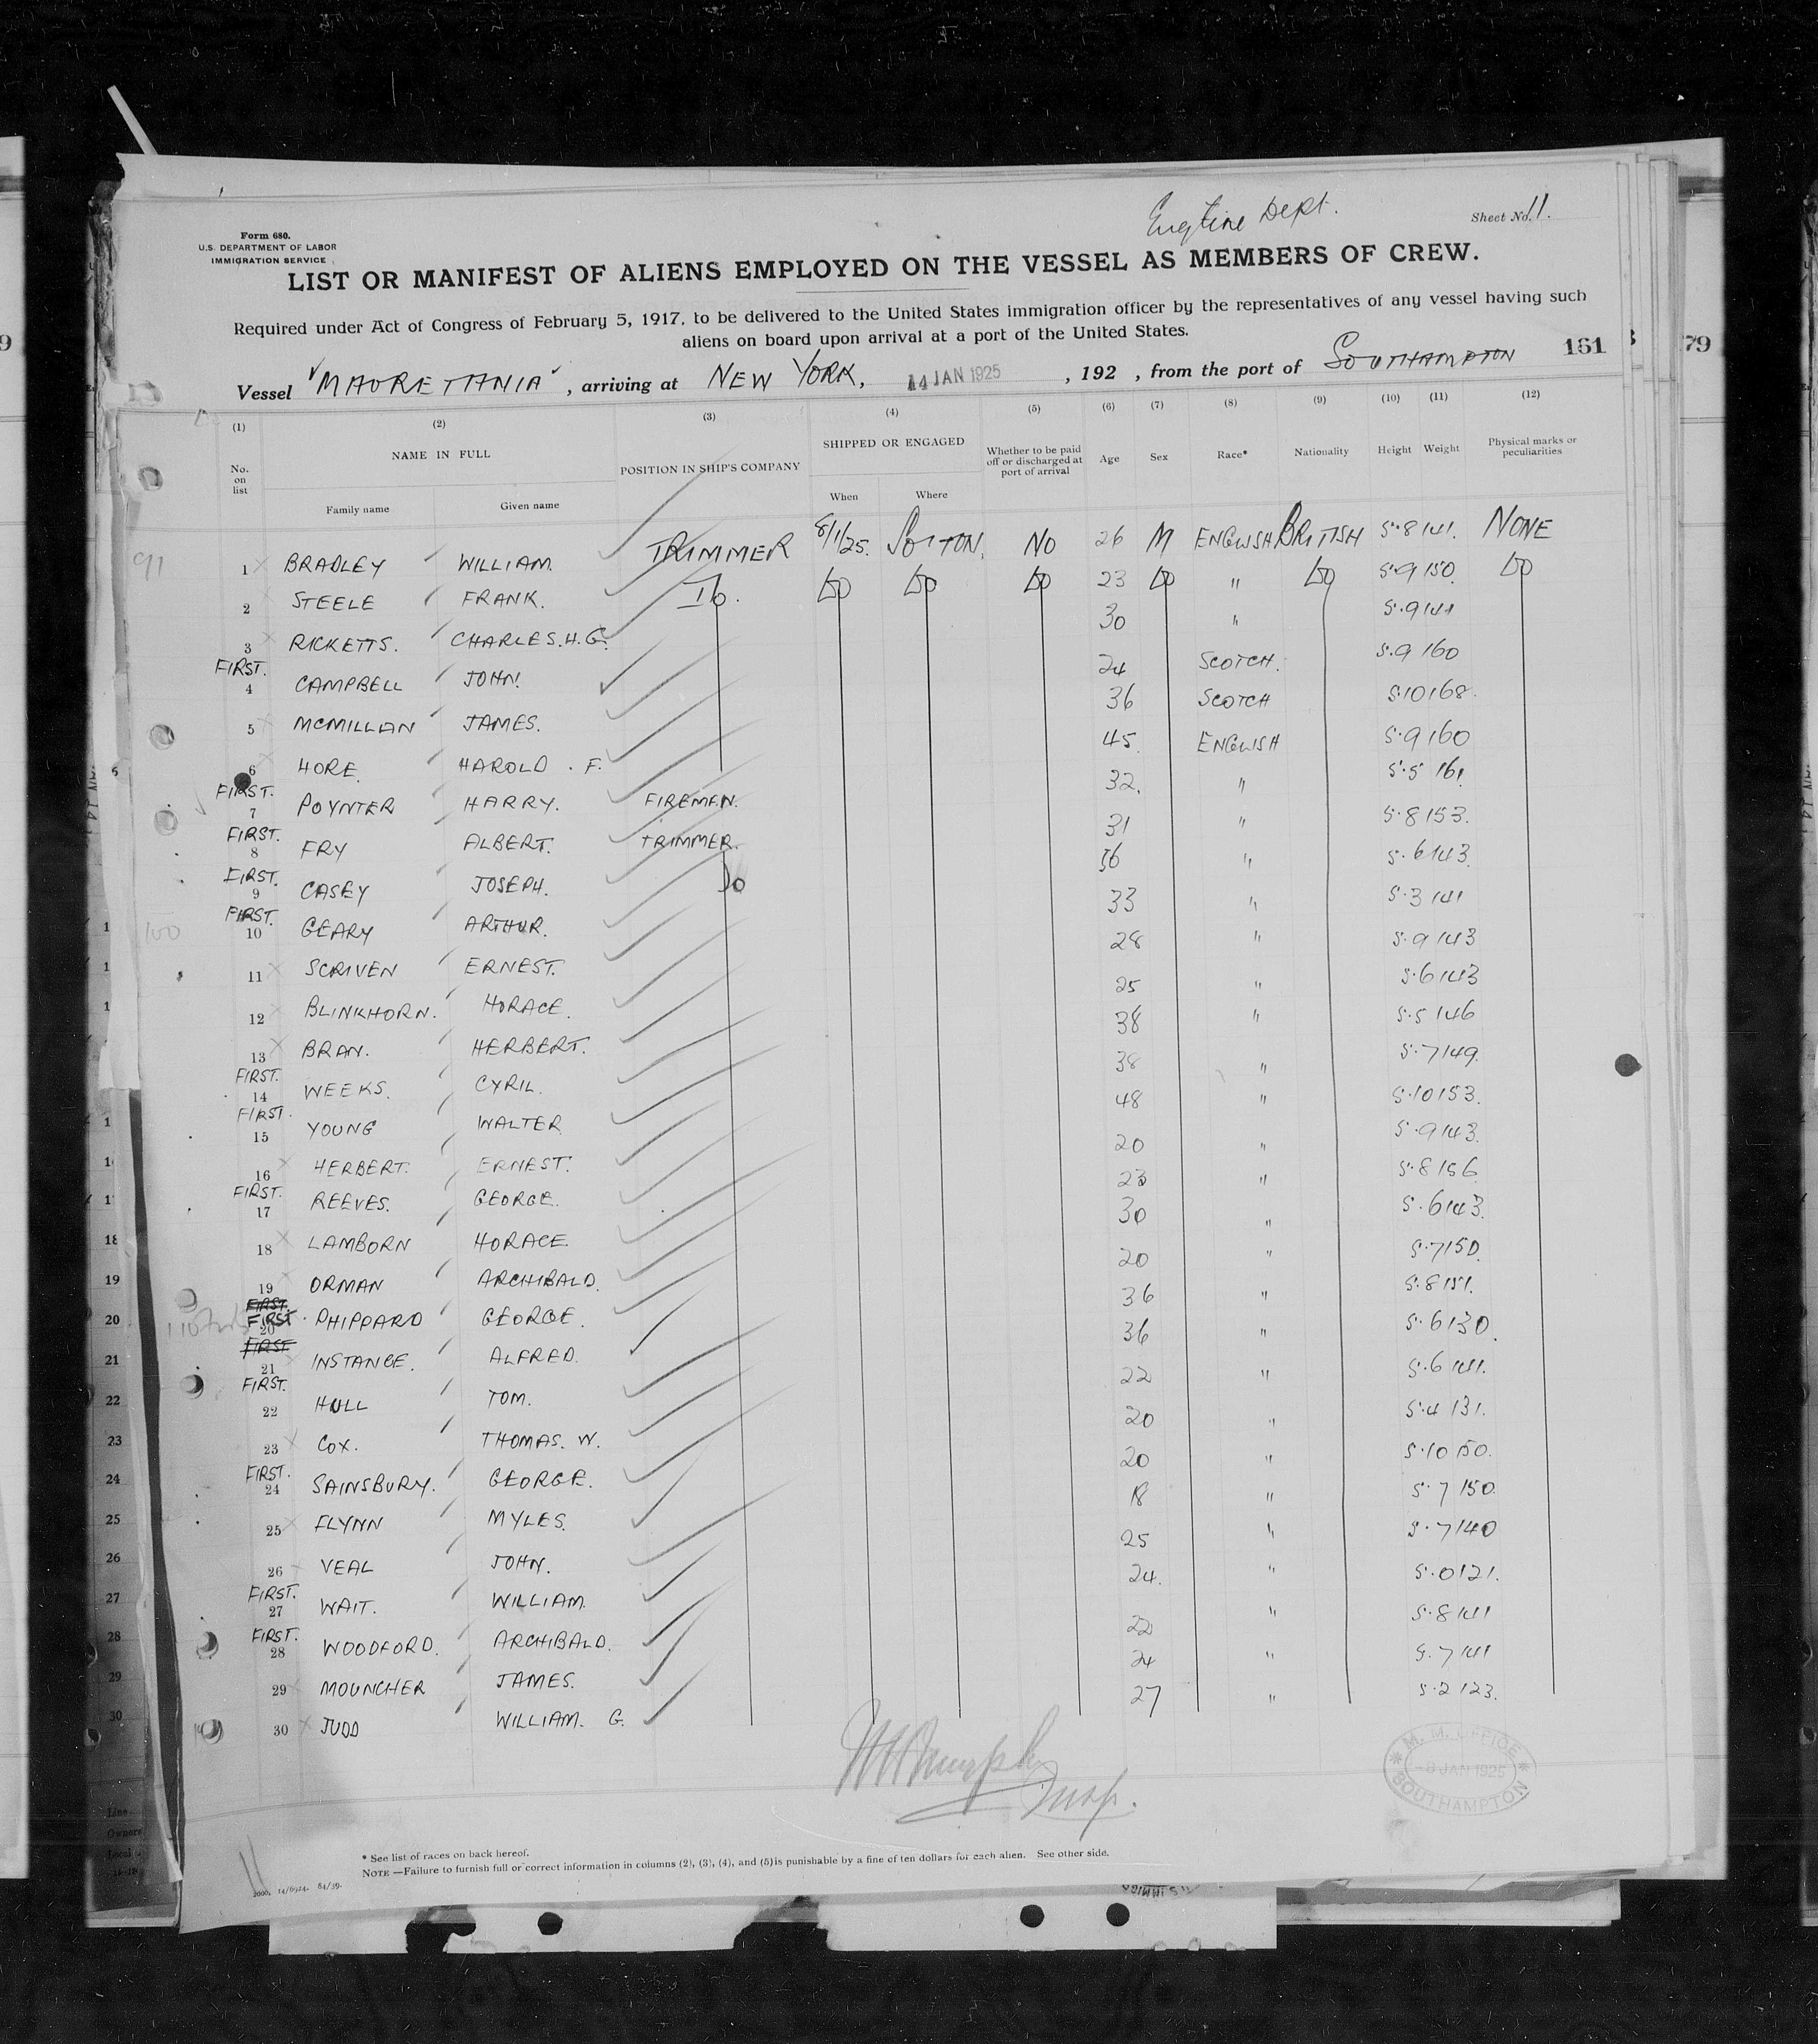 Engine Dept.
Sheet No. 11.
Form 680.
U.S. DEPARTMENT OF LABOR
IMMIGRATION SERVICE
LIST OR MANIFEST OF ALIENS EMPLOYED ON THE VESSEL AS MEMBERS OF CREW.
Required under Act of Congress of February 5, 1917, to be delivered to the United States immigration officer by the representatives of any vessel having such
aliens on board upon arrival at a port of the United States.
161
79
Vessel "MAURETANIA", arriving at NEW YORK, 14 JAN 1925, 192 , from the port of SOUTHAMPTON
(1) (2) (3) (4) (5) (6) (7) (8) (9) (10) (11) (12)
No. on list NAME IN FULL POSITION IN SHIP'S COMPANY SHIPPED OR ENGAGED Whether to be paid off or discharged at port of arrival Age Sex Race* Nationality Height Weight Physical marks or peculiarities
Family name Given name When Where
91
1 BRADLEY WILLIAM. TRIMMER 8/1/25. SO'TON. NO 26 M ENGLISH BRITISH 5.8 141. NONE
2 STEELE FRANK. DO. DO DO DO 23 DO " DO 5.9 150. DO
3 RICKETTS. CHARLES.H.G. 30 " 5.9 141
FIRST. 4 CAMPBELL JOHN. 24 SCOTCH. 5.9 160
5 MCMILLAN JAMES. 36 SCOTCH 5.10 168.
6 HORE. HAROLD. F. 45. ENGLISH 5.9 160
FIRST. 7 POYNTER HARRY. FIREMAN. 32. " 5.5 161
FIRST. 8 FRY ALBERT. TRIMMER. 31 " 5.8 153.
FIRST. 9 CASEY JOSEPH. DO 56 " 5.6 143.
FIRST. 10 GEARY ARTHUR. 33 " 5.3 141
100
11 SCRIVEN ERNEST. 28 " 5.9 143
12 BLINKHORN. HORACE. 25 " 5.6 143
13 BRAN. HERBERT. 38 " 5.5 146
FIRST. 14 WEEKS. CYRIL. 38 " 5.7 149.
FIRST. 15 YOUNG WALTER 48 " 5.10 153.
16 HERBERT. ERNEST. 20 " 5.9 143.
FIRST. 17 REEVES. GEORGE. 23 " 5.8 156
18 LAMBORN HORACE. 30 " 5.6 143.
19 ORMAN ARCHIBALD. 20 " 5.7 150.
FIRST.
FIRST. 20 PHIPPARD GEORGE. 36 " 5.8 151.
FIRST 21 INSTANCE. ALFRED. 36 " 5.6 130.
FIRST. 22 HULL TOM. 22 " 5.6 141.
23 COX. THOMAS. W. 20 " 5.4 131.
FIRST. 24 SAINSBURY. GEORGE. 20 " 5.10 150.
25 FLYNN MYLES. 18 " 5.7 150.
26 VEAL JOHN. 25 " 5.7 140
FIRST. 27 WAIT. WILLIAM. 24. " 5.0 121.
FIRST. 28 WOODFORD. ARCHIBALD. 22 " 5.8 141
29 MOUNCHER JAMES. 24 " 5.7 141
30 JUDD WILLIAM. G. 27 " 5.2 123.
Insp.
M. M. OFFICE
-8 JAN 1925
SOUTHAMPTON
* See list of races on back hereof.
NOTE —Failure to furnish full or correct information in columns (2), (3), (4), and (5) is punishable by a fine of ten dollars for each alien. See other side.
2000. 14/6924. 84/39.